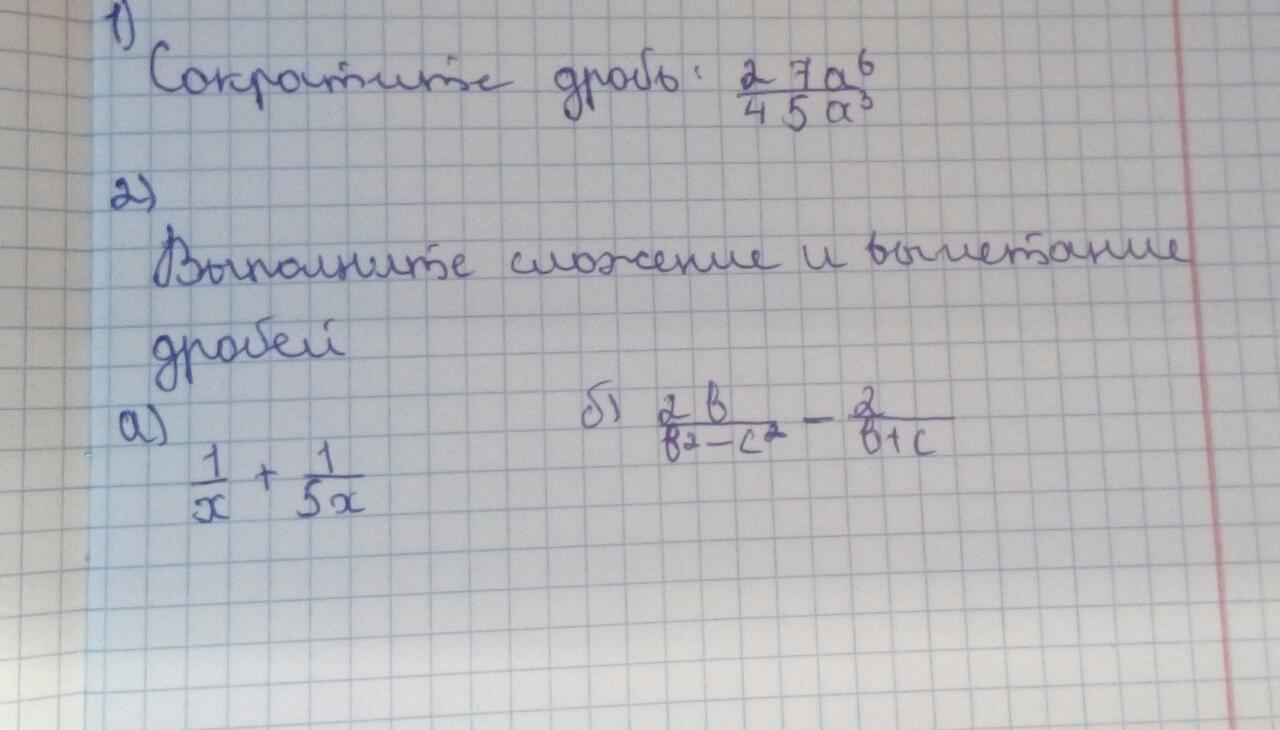 1)
Сократите дробь: 27a⁶/45a³
2)
Выполните сложение и вычетание
дробей
а) 1/x + 1/5x
б) 2b/b²-c² - 2/b+c